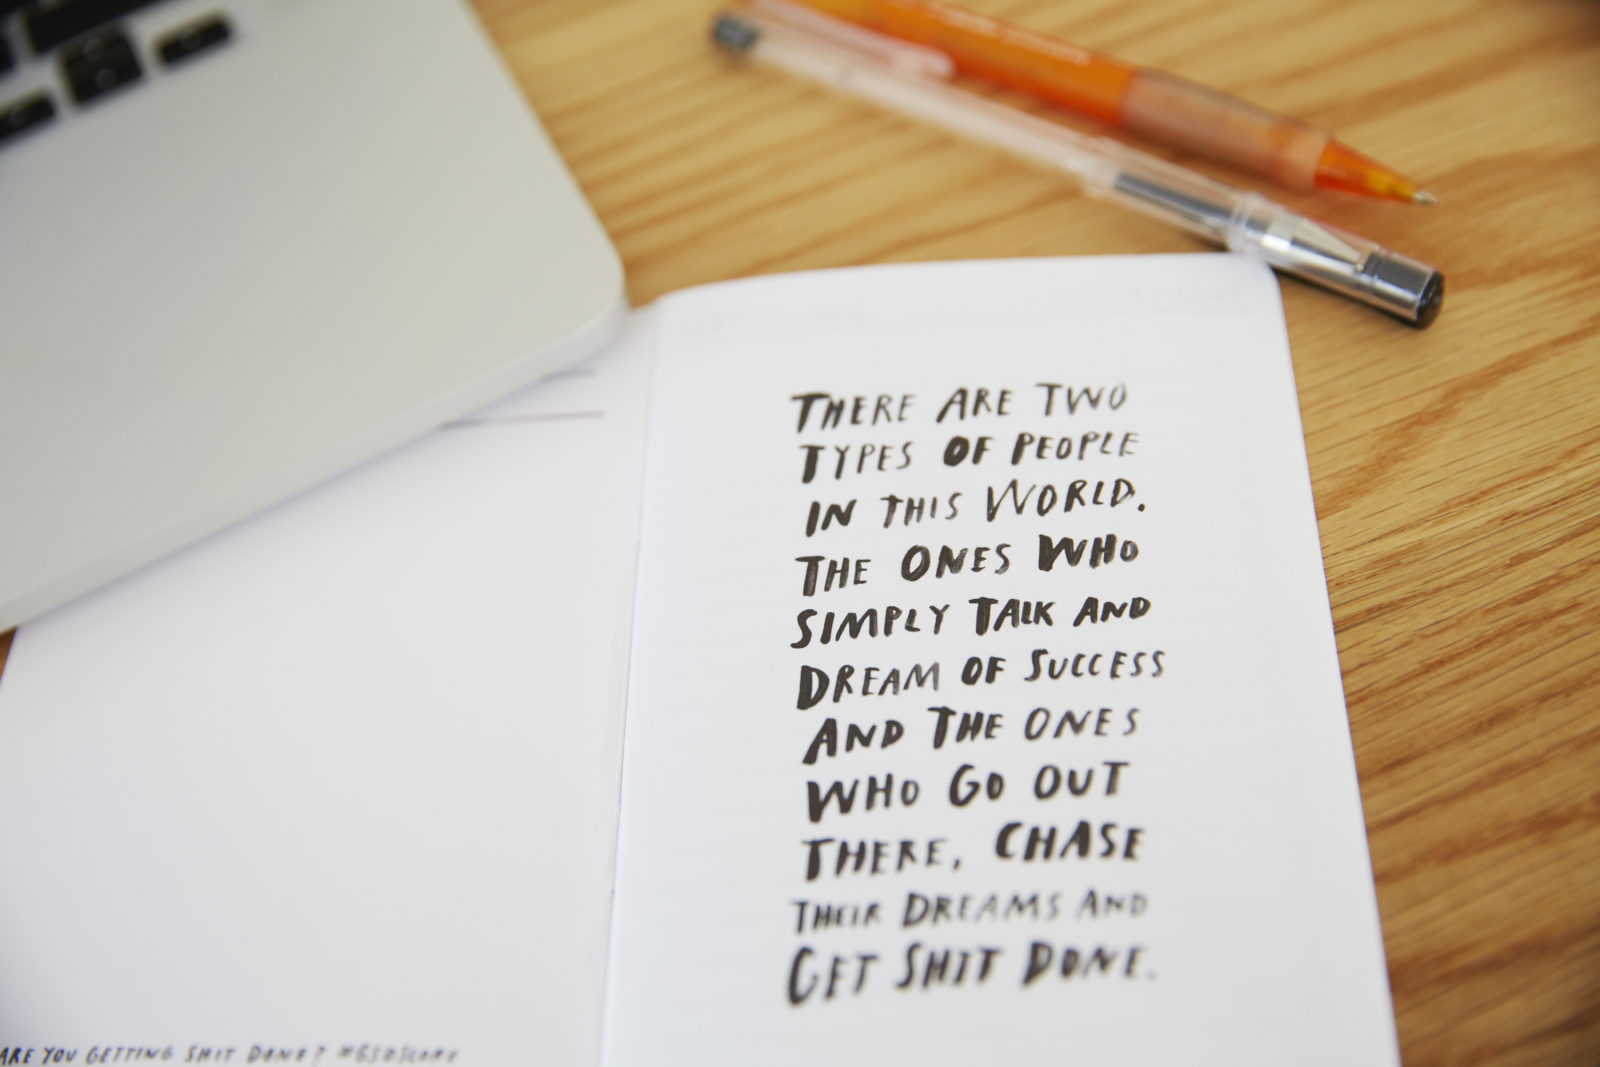 THERE ARE TWO
TYPES OF PEOPLE
IN THIS WORLD.
THE ONES WHO
SIMPLY TALK AND
DREAM OF SUCCESS
AND THE ONES
WHO GO OUT
THERE, CHASE
THEIR DREAMS AND
GET SHIT DONE.
ARE YOU GETTING SHIT DONE?